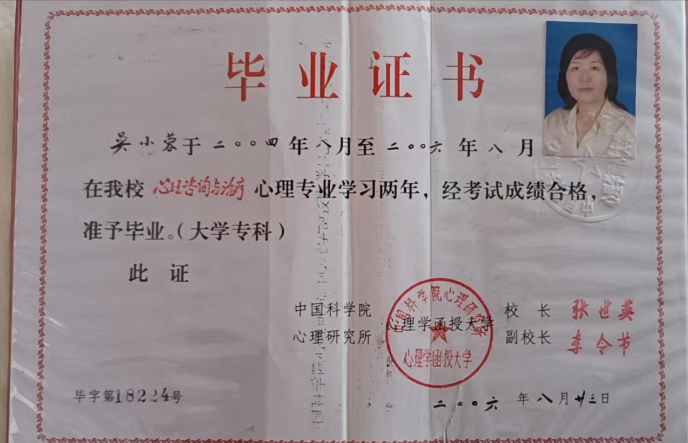 毕业证书
吴小蓉于二〇〇四年八月至二〇〇六年八月
在我校心理咨询与治疗心理专业学习两年，经考试成绩合格，
准予毕业。(大学专科)
此证
中国科学院 心理学函授大学 校长 张世英
心理研究所 副校长 李令节
中国科学院心理研究所
心理学函授大学
毕字第18224号
二〇〇六年八月廿三日